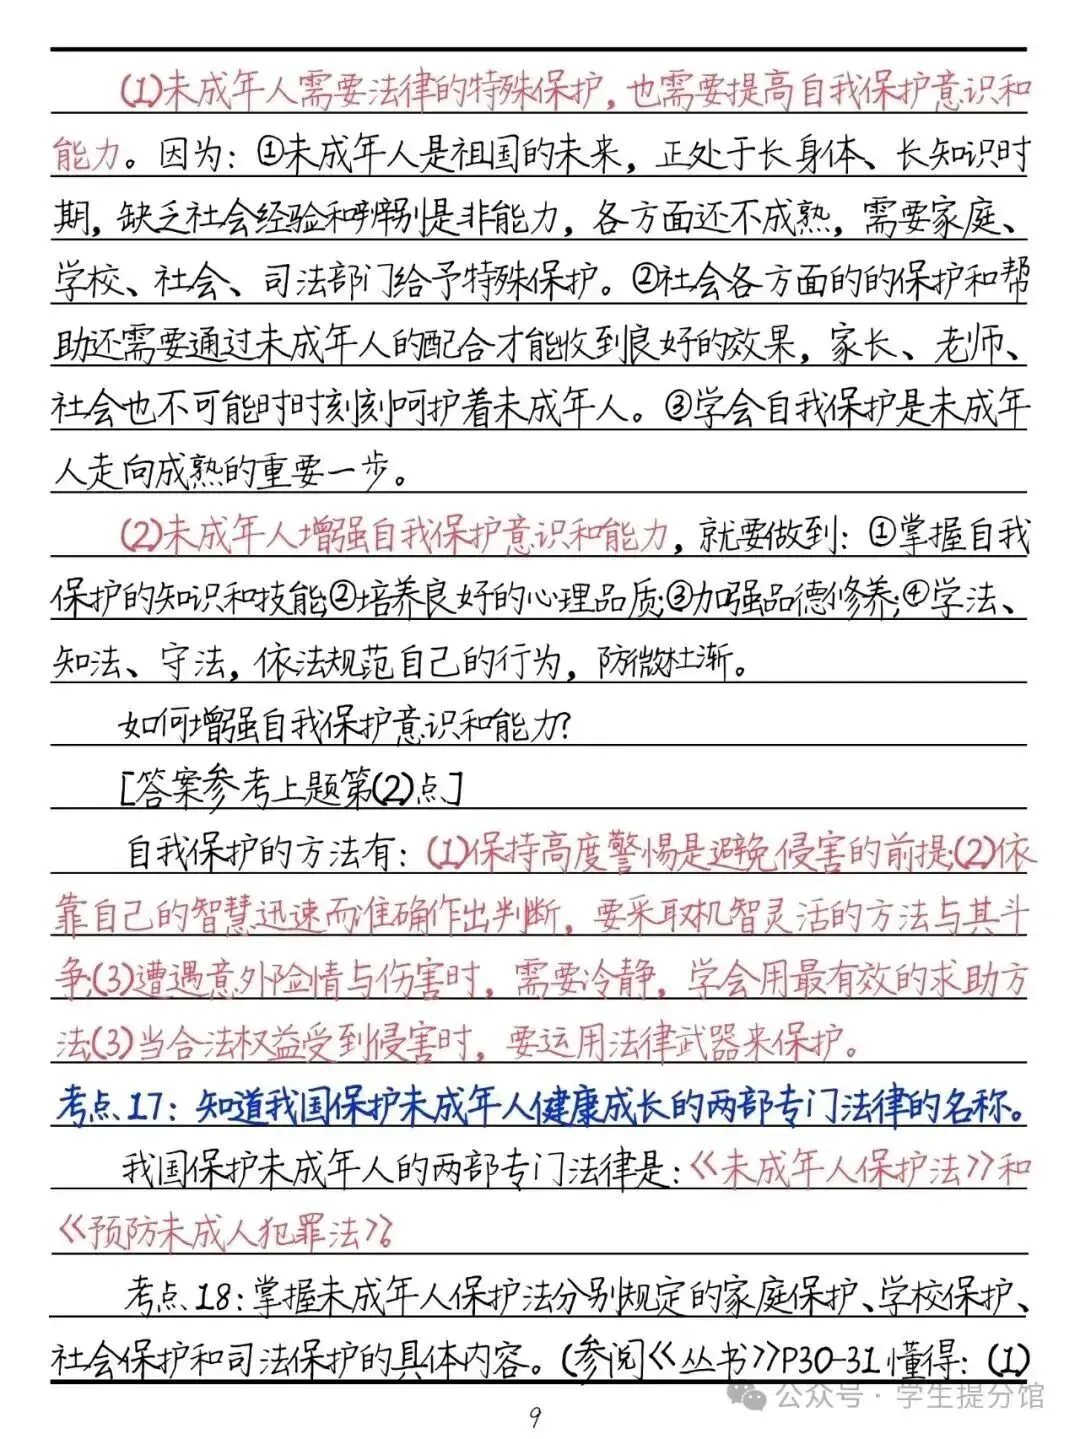 (1)未成年人需要法律的特殊保护，也需要提高自我保护意识和
能力。因为：①未成年人是祖国的未来，正处于长身体、长知识时
期，缺乏社会经验和辨别是非能力，各方面还不成熟，需要家庭、
学校、社会、司法部门给予特殊保护。②社会各方面的的保护和帮
助还需要通过未成年人的配合才能收到良好的效果，家长、老师、
社会也不可能时时刻刻呵护着未成年人。③学会自我保护是未成年
人走向成熟的重要一步。
(2)未成年人增强自我保护意识和能力，就要做到：①掌握自我
保护的知识和技能;②培养良好的心理品质;③加强品德修养;④学法、
知法、守法，依法规范自己的行为，防微杜渐。
如何增强自我保护意识和能力?
[答案参考上题第(2)点]
自我保护的方法有：(1)保持高度警惕是避免侵害的前提;(2)依
靠自己的智慧迅速而准确作出判断，要采取机智灵活的方法与其斗
争;(3)遭遇意外险情与伤害时，需要冷静，学会用最有效的求助方
法;(3)当合法权益受到侵害时，要运用法律武器来保护。
考点17：知道我国保护未成年人健康成长的两部专门法律的名称。
我国保护未成年人的两部专门法律是：《未成年人保护法》和
《预防未成人犯罪法》。
考点18：掌握未成年人保护法分别规定的家庭保护、学校保护、
社会保护和司法保护的具体内容。(参阅《丛书》P30-31懂得：(1)
公众号·学生提分馆
9